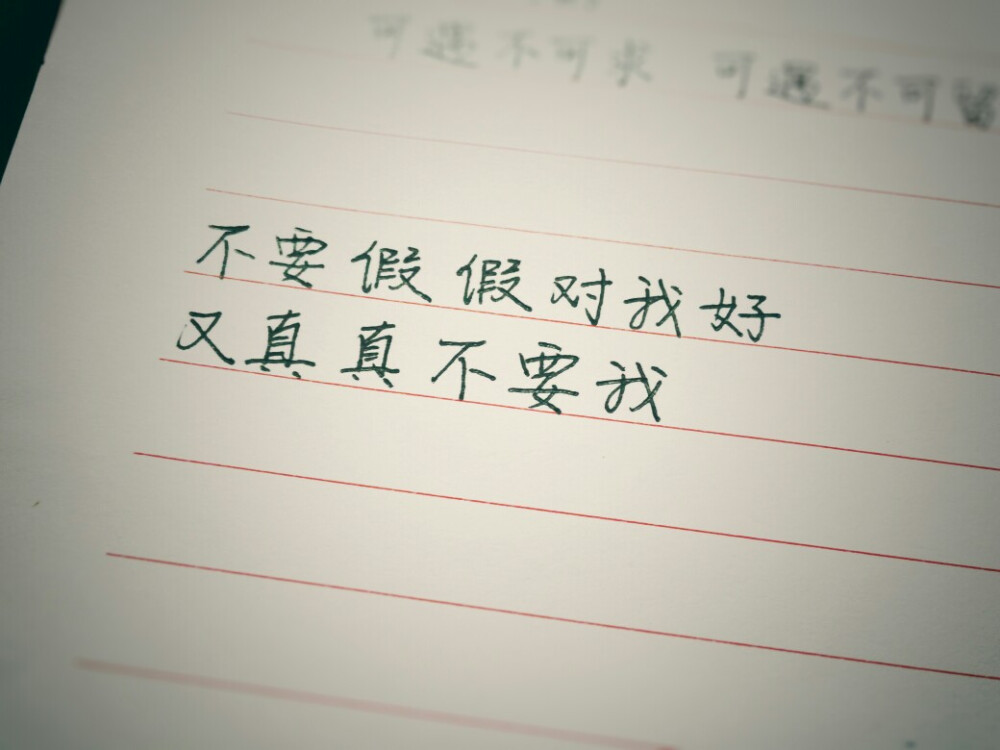 可遇不可求 可遇不可留
不要假假对我好
又真真不要我